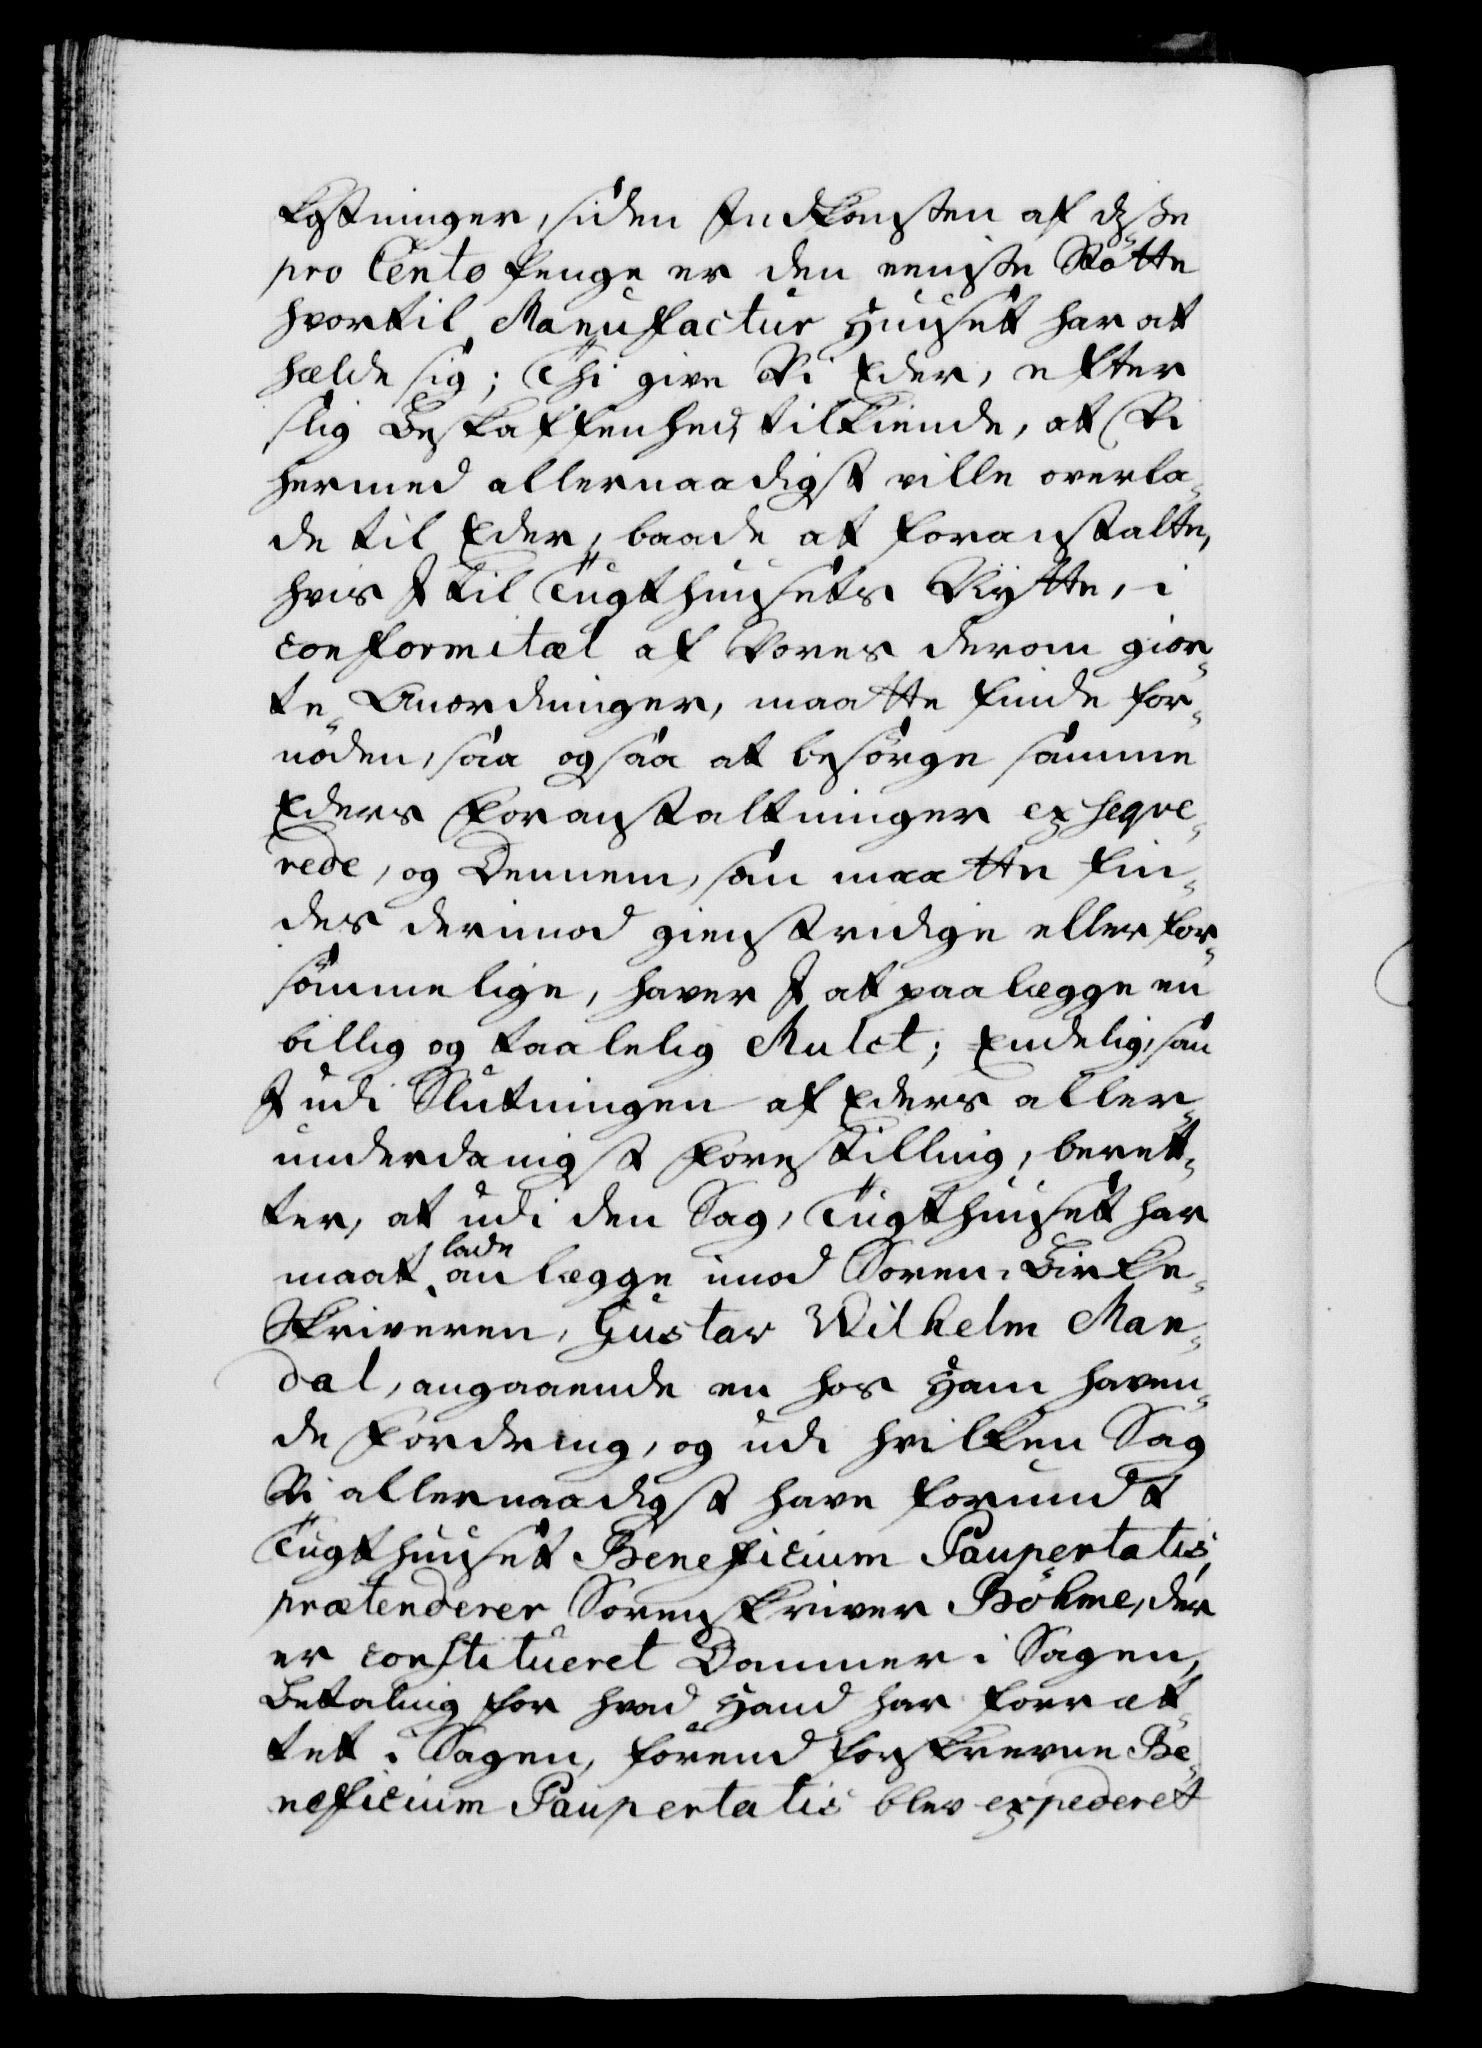 kostninger, siden Indkomsten af disse
pro Cento Penge er den eeniste Støtte
hvortil Manufactur Huuset har at
holde sig; Thi give Vi Eder, efter
slig Beskaffenhed, tilkiende, at Vi
hermed allernaadigst ville overla-
de til Eder, baade at foranstalte,
hvis I til Tugthuusets Nytte, i
conformitæt af Vores derom gior-
te Anordninger, maatte finde for-
nøden, saa og saa at besørge samme
Eders Foranstaltninger exseqve-
rede, og Dennem, som maatte fin-
des derimod gienstridige eller for-
sømmelige, haver I at paalegge en
billig og taalelig Mulct; Endelig, som
I udi Slutningen af Eders aller-
underdanigst Forestilling, beret-
ter, at udi den Sag, Tugthuuset har
maat lade anlægge imod Soren-Birke-
Skriveren, Gustav Wilhelm Man-
dal, angaaende en hos Ham haven-
de Fordring, og udi hvilken Sag
Vi allernaadigst have forundt
Tugthuuset Beneficium Paupertatis,
prætenderer Sorenskriver Böhme, der
er constitueret Dommer i Sagen,
Betaling for hvad Hand har forræt-
tet i Sagen, førend forskrevne Be-
neficium Paupertatis blev expederet